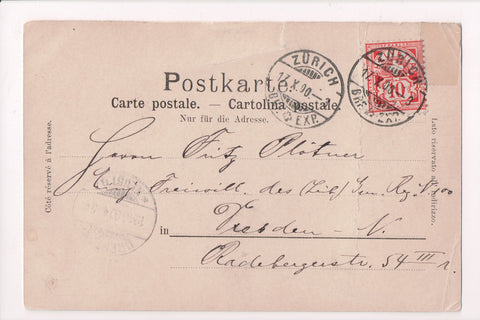 ZÜRICH
17.X.00.-
BRF. EXP.
ZÜRICH
17.X.00.-
BRF. EXP.
Postkarte.
Carte postale. — Cartolina postale.
Nur für die Adresse.
Côté réservé à l'adresse.
Lato riservato all'indirizzo.
Herrn Fritz Plötner
Freiwill. des (Leib) Gren. Reg. No 100
in Dresden - N.
Radebergerstr. 54 III r.